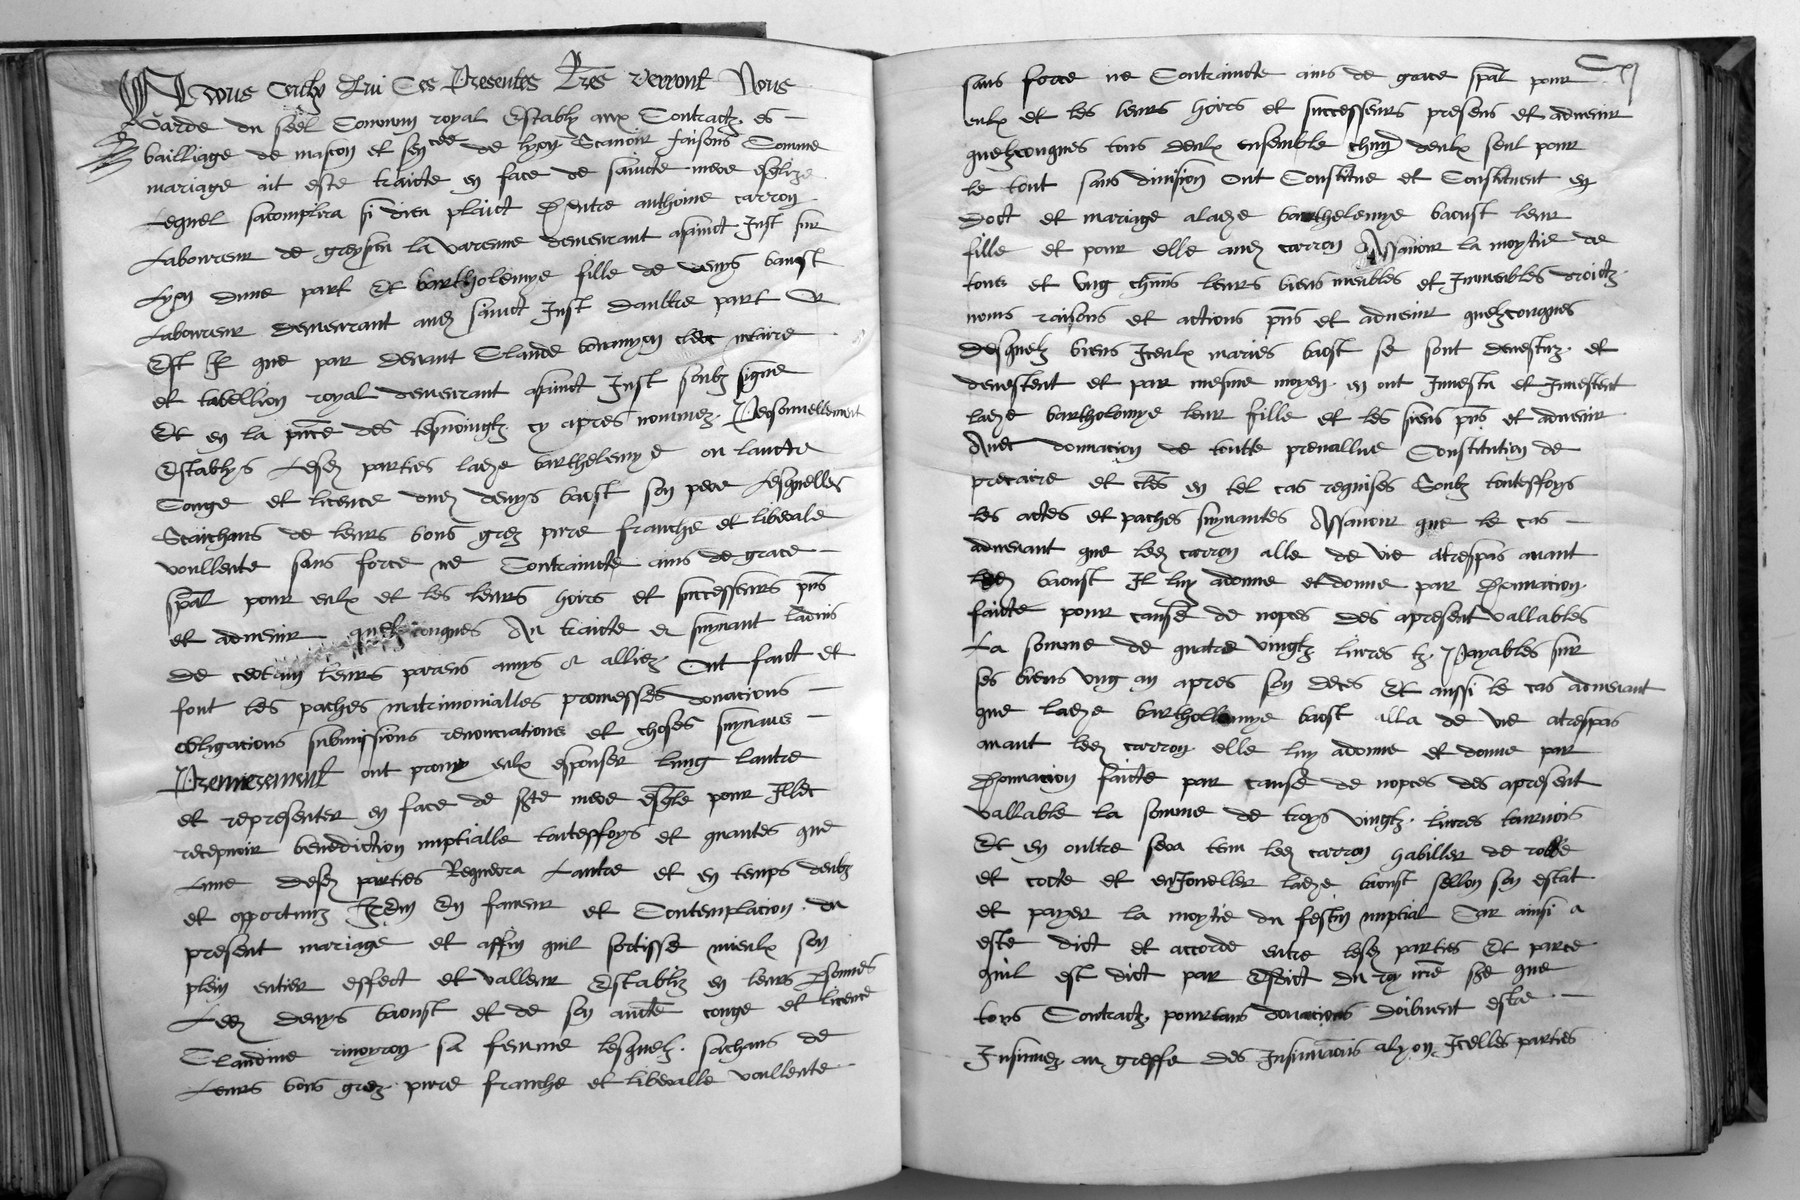 A tous ceulx Qui Ces Presentes Lres Verront Nous
Garde du seel Commun royal Estably aux Contractz es
bailliage de mascon et sencee de lyon Scavoir faisons Comme
mariage ait este traicte en face de saincte mere esglize
Lequel sacomplira si dieu plaict Dentre anthoine carron
Laboureur de la varenne demeurant asainct Just sur
Lyon dune part Et barthelemye fille de denys baust
Laboureur demeurant aud sainct Just daultre part Or
Est Il que par devant Claude clerc notaire
et tabellion royal demeurant asainct Just soubz signe
Et en la pnce des tesmoingtz cy apres nommez Personnellement
Establys Lesd parties ladte barthelemye ou laucte
Conge et licence dud denys baost son pere Lesquelles
Scaichans de leurs bons grez pure franche et liberale
voullente sans force ne Contraincte ains de grace
spal pour eulx et les leurs hoirs et successeurs pns
et advenir quelzconques Au traicte et suyvant ladvis
de certain leurs parens amys et alliez Ont faict et
font les paches matrimonialles promesses donacions
obligacions submissions renonciations et choses suyvans
Premierement ont promis eulx espouser lung laultre
et representer en face de ste mere esgle pour Illec
recepvoir benediction nuptialle touteffoys et quantes que
Lune desd parties Requerra Laultre et en temps deubz
et opportunz Item En faveur et Contemplacion du
present mariage et affin quil sortisse mieulx son
plein entier effect et valleur Establiz en leurs psonnes
Led denys baoust et de son aucte conge et licence
Claudine sa femme lesquelz sachans de
Leurs bons grez pure franche et liberalle voullente
sans force ne Contraincte ains de grace spal pour
eulx et les leurs hoirs et successeurs presens et advenir
quelzconques tous deulx ensemble chun deulx seul pour
le tout sans division Ont Constitue et Constituent en
doct et mariage aladte barthelemye baoust leur
fille et pour elle aud carron Assavoir la moytie de
tous et ung chuns leurs biens meubles et Immeubles droictz
noms raisons et actions pns et advenir quelzconques
Desquelz biens Iceulx maries baost se sont devestuz et
devestent et par mesme moyen en ont Investu et Investent
ladte bartholomye leur fille et les siens pns et advenir
Avec donnacion de toutte prevallue Constitution de
precaire et cles en tel cas requises Soubz touteffoys
les actes et paches suyvantes Assavoir que le cas
advenant que led carron alle de vie atrespas avant
lad baoust Il luy adonne et donne par Donnacion
faicte pour cause de nopces des apresent vallables
La somme de quatre vingtz livres tz Payables sur
ses biens ung an apres son deces Et aussi le cas advenant
que ladte barthollemye baost alla de vie atrespas
avant led carron elle luy adonne et donne par
Donnacion faicte par cause de nopces des apresent
vallable la somme de troys vingtz livres tournois
Et en oultre sera tenu led carron habiller de robbe
et cocte et enJoueller ladte baoust sellon son estat
et payer la moytie du festin nuptial Car ainsi a
este dict et accorde entre lesd parties Et parce
quil est dict par Esdict du roy nre sre que
tous Contractz pourtans donacions doibvent estre
Insinuez au greffe des Insinuacions alyon Icelles parties